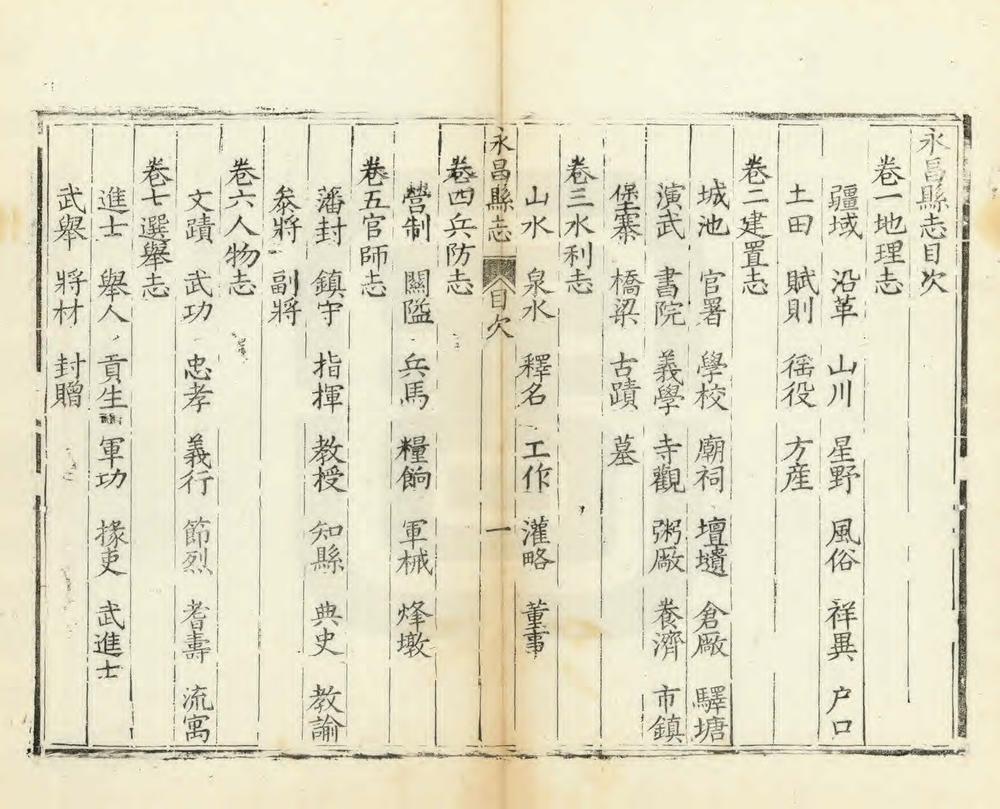 永昌縣志目次
卷一地理志
疆域 沿革 山川 星野 風俗 祥異 户口
土田 賦則 徭役 方産
卷二建置志
城池 官署 學校 廟祠 壇壝 倉厫 驛塘
演武 書院 義學 寺觀 粥厫 養濟 市鎮
堡寨 橋梁 古蹟 墓
卷三水利志
山水 泉水 釋名 工作 灌略 董事
永昌縣志 目次 一
卷四兵防志
營制 關隘 兵馬 糧餉 軍械 烽墩
卷五官師志
藩封 鎮守 指揮 教授 知縣 典史 教諭
叅將 副將
卷六人物志
文蹟 武功 忠孝 義行 節烈 耆壽 流寓
卷七選舉志
進士 舉人 貢生 軍功 掾吏 武進士
武舉 將材 封贈